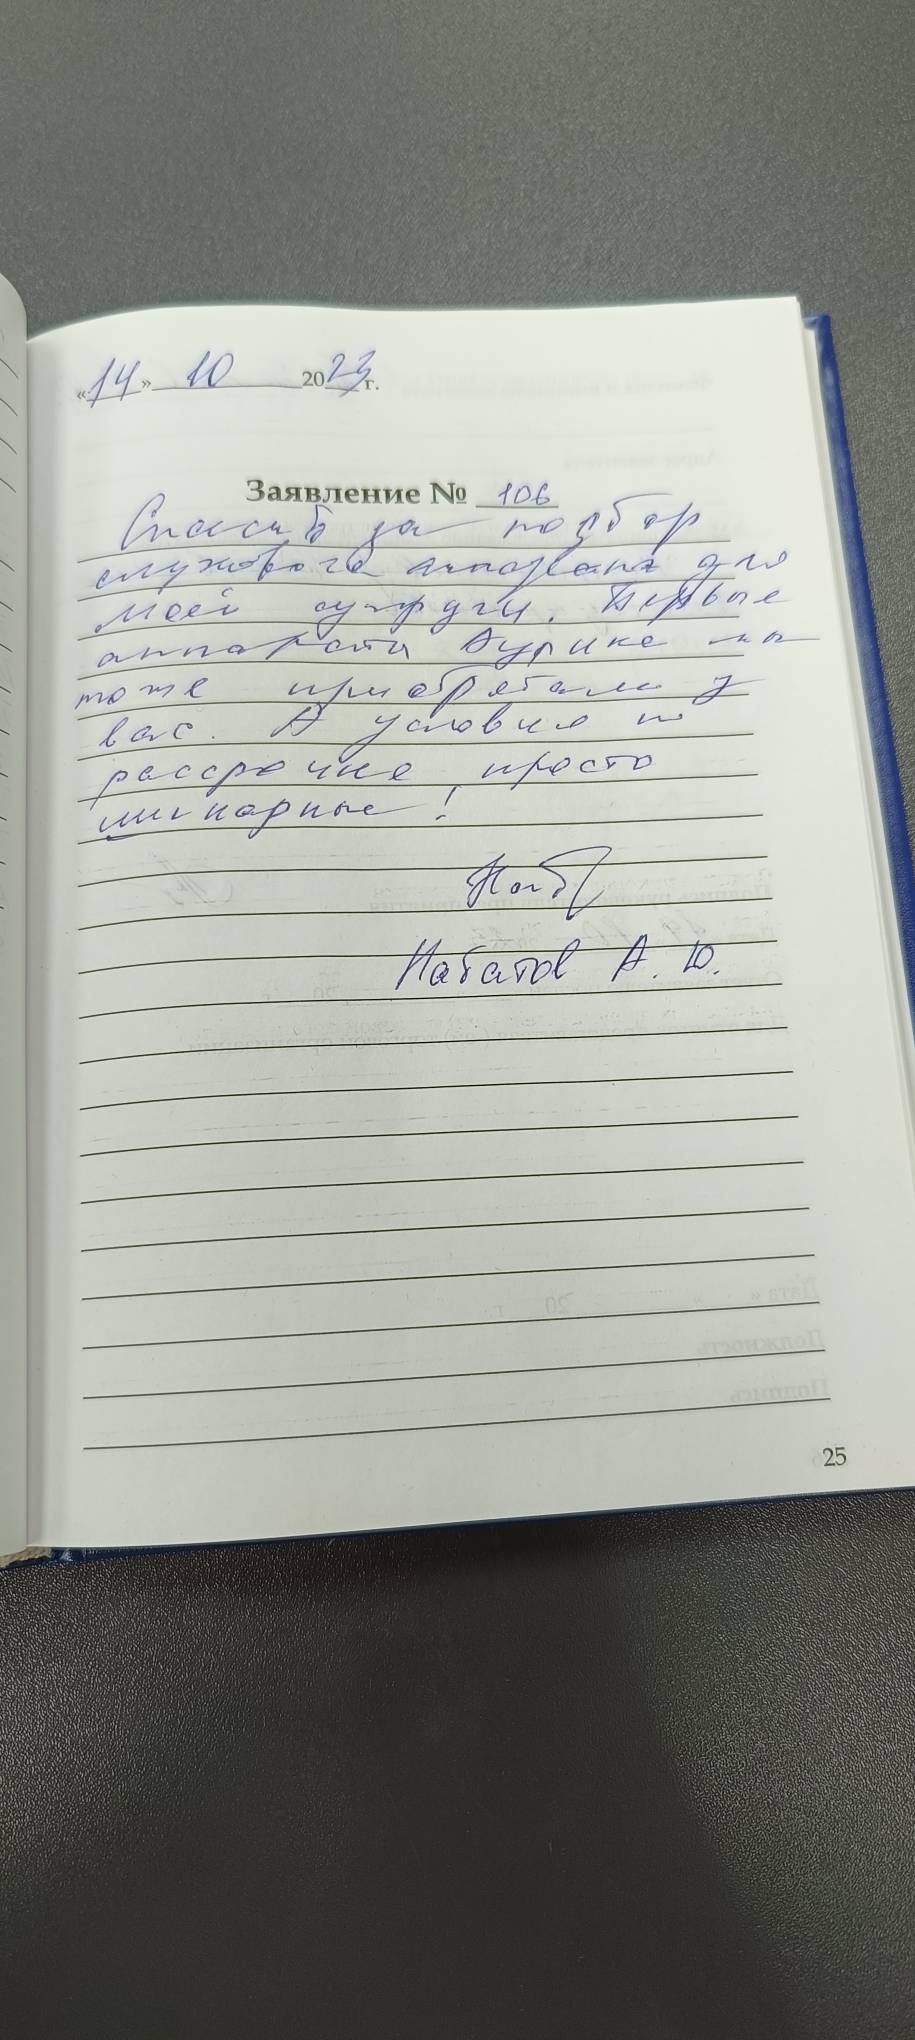 «14» 10 2023 г.
Заявление № 106
Спасибо за подбор
слухового аппарата для
моей супруги. Первые
аппараты Аурика мы
тоже приобретали у
вас. А условия по
рассрочке просто
шикарные!
Набатов А. Ю.
25